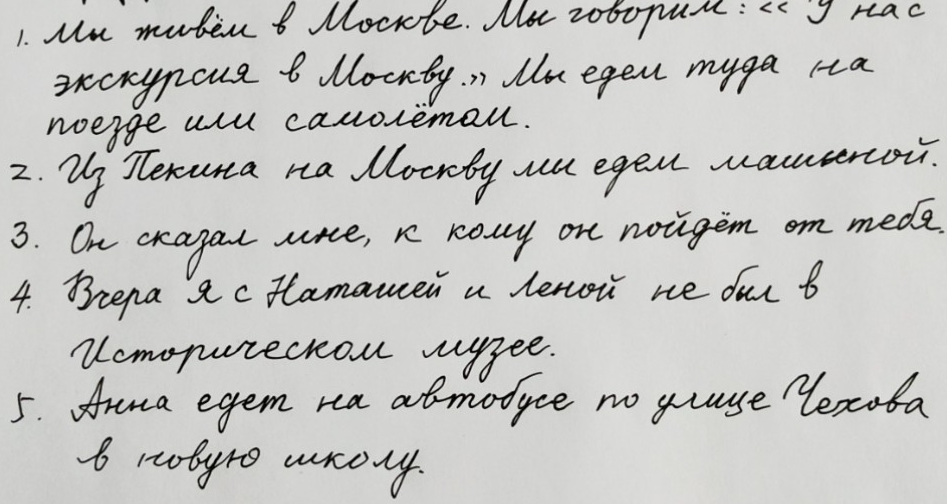 1. Мы живём в Москве. Мы говорим: « У нас
экскурсия в Москву.» Мы едем туда на
поезде или самолётом.
2. Из Пекина на Москву ми едем машыной.
3. Он сказал мне, к кому он пойдёт от тебя.
4. Вчера я с Наташей и Леной не был в
Историческом музее.
5. Анна едет на автобусе по улице Чехова
в новую школу.